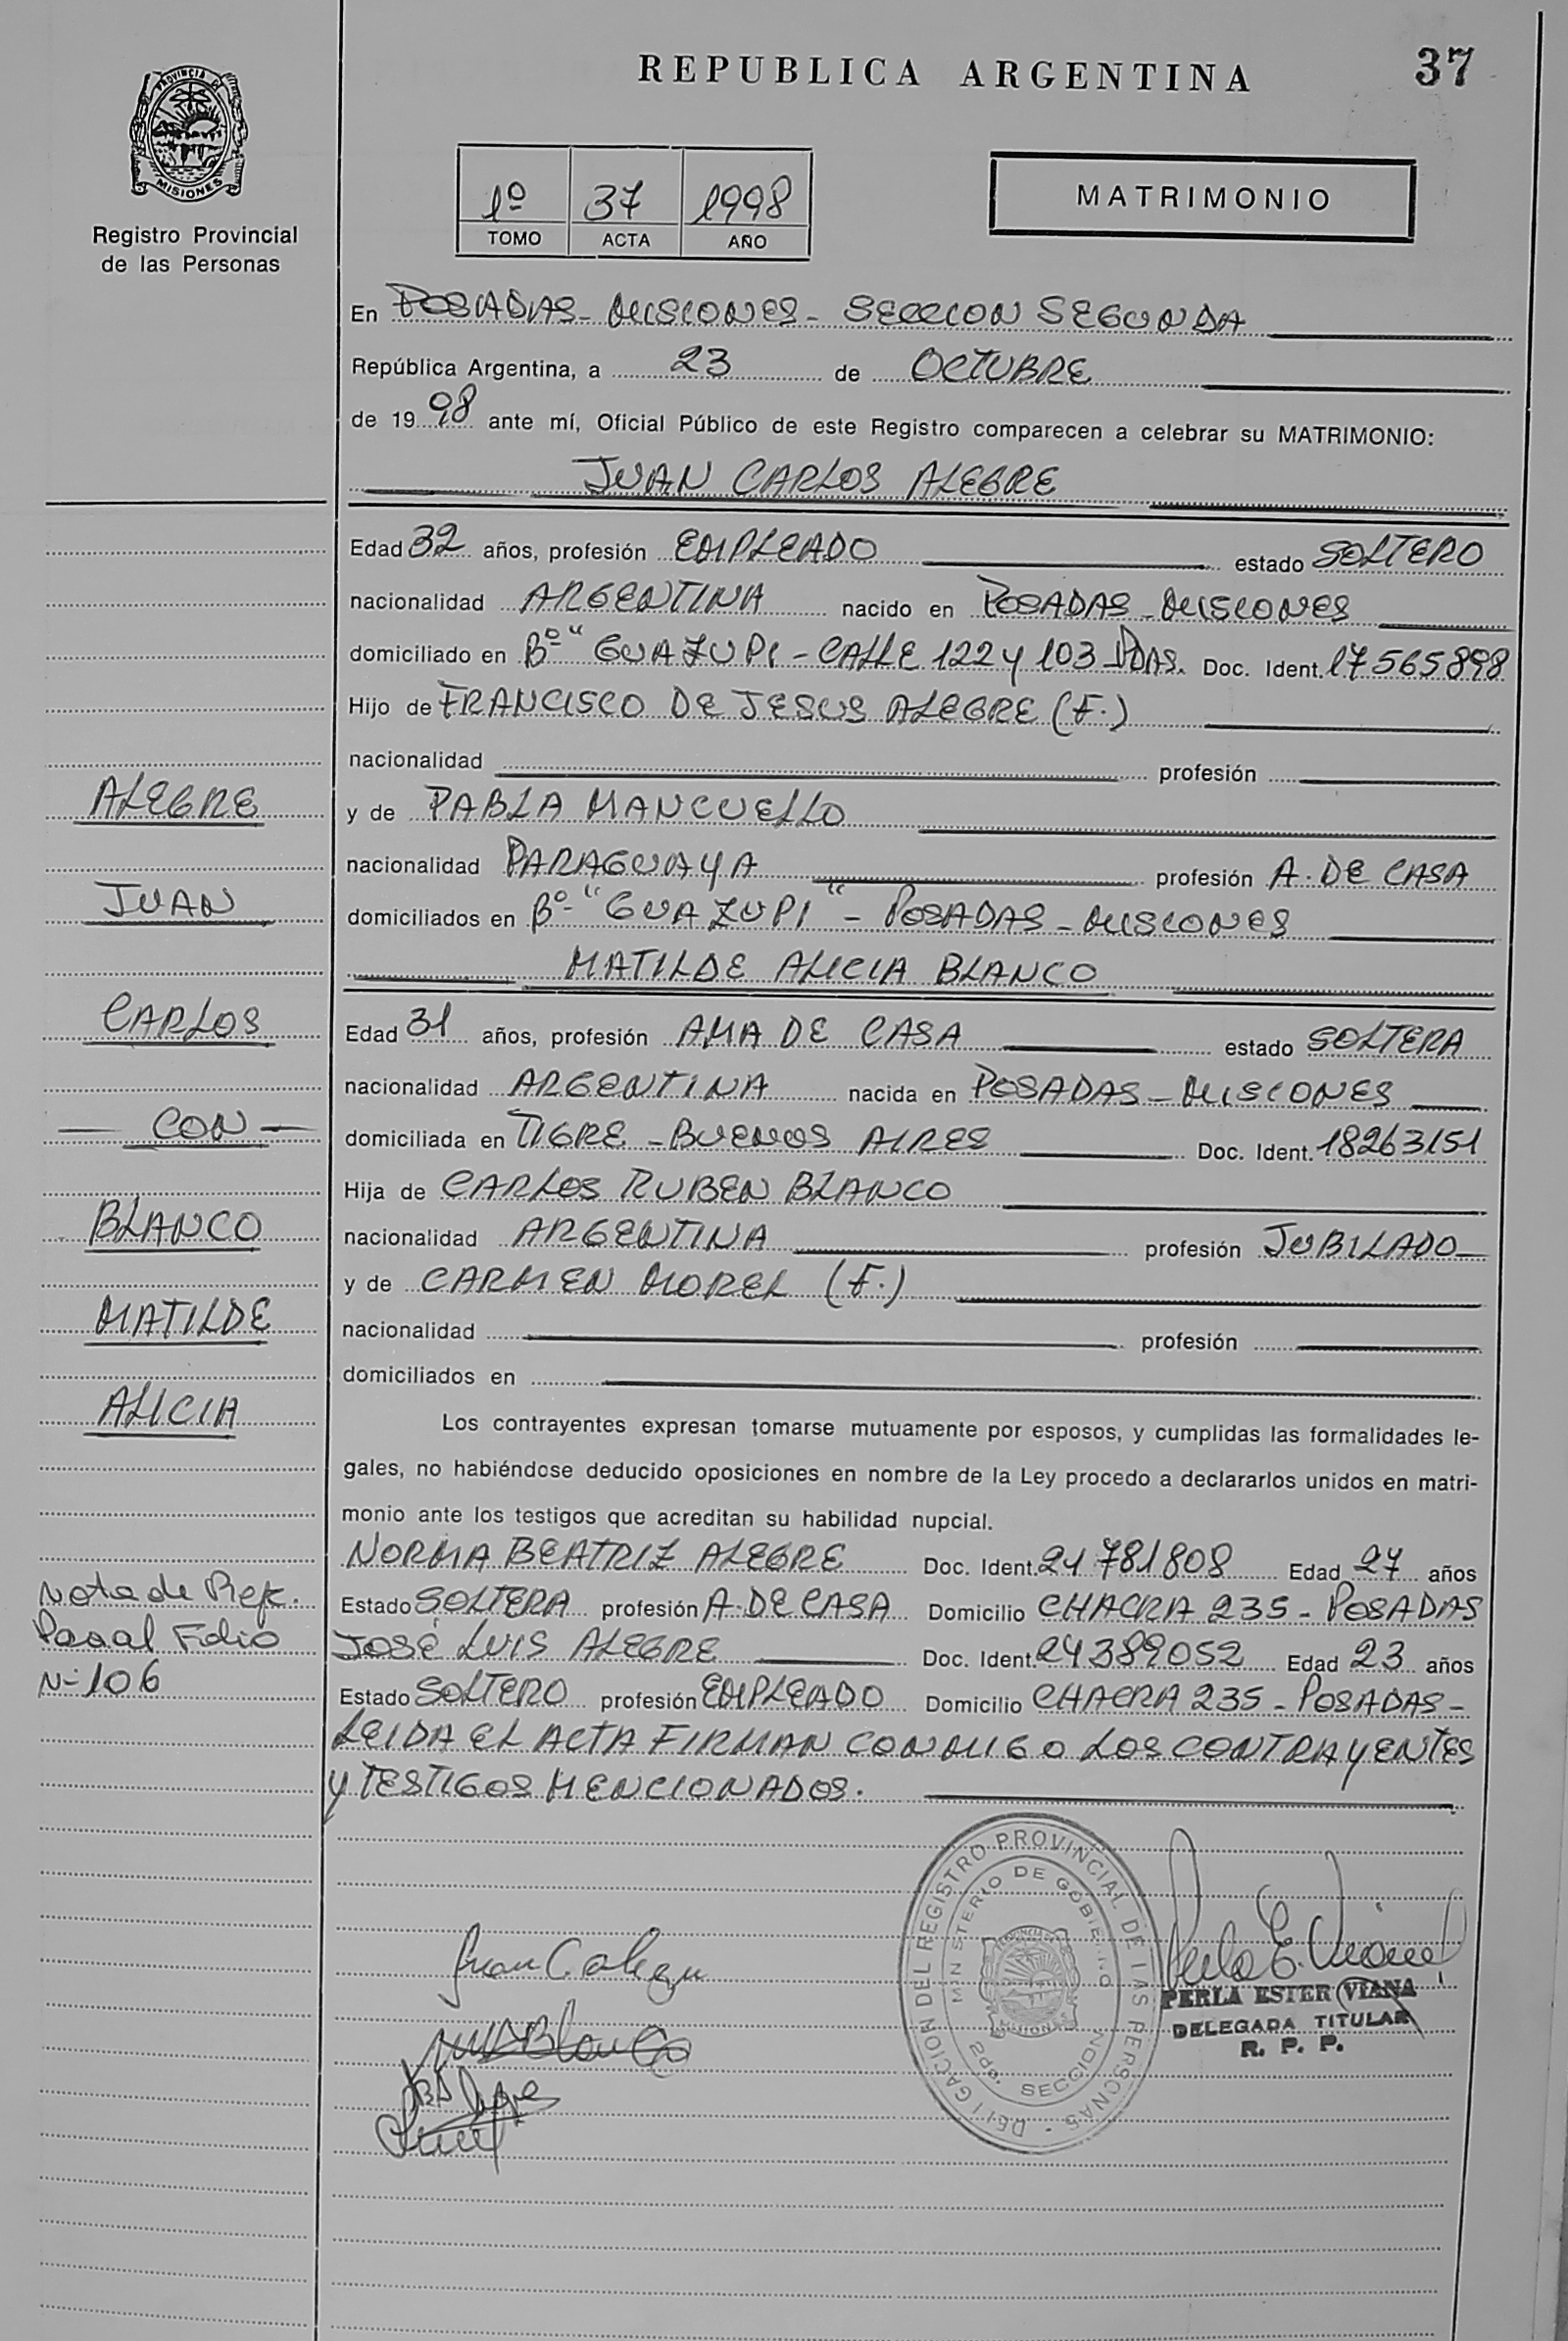 REPUBLICA ARGENTINA
37
PROVINCIA DE
MISIONES
Registro Provincial
de las Personas
1º 37 1998
TOMO ACTA AÑO
MATRIMONIO
En POSADAS - MISIONES - SECCION SEGUNDA
República Argentina, a 23 de OCTUBRE
de 1998 ante mí, Oficial Público de este Registro comparecen a celebrar su MATRIMONIO:
JUAN CARLOS ALEGRE
Edad 32 años, profesión EMPLEADO estado SOLTERO
nacionalidad ARGENTINA nacido en POSADAS - MISIONES
domiciliado en Bº " GUAZUPI - CALLE 122 y 103 PDAS. Doc. Ident. 17565898
Hijo de FRANCISCO DE JESUS ALEGRE (F.)
nacionalidad profesión
y de PABLA MANCUELLO
nacionalidad PARAGUAYA profesión A. DE CASA
domiciliados en Bº - "GUAZUPI" - POSADAS - MISIONES
MATILDE ALICIA BLANCO
Edad 31 años, profesión AMA DE CASA estado SOLTERA
nacionalidad ARGENTINA nacida en POSADAS - MISIONES
domiciliada en TIGRE - BUENOS AIRES Doc. Ident. 18263151
Hija de CARLOS RUBEN BLANCO
nacionalidad ARGENTINA profesión JUBILADO
y de CARMEN MOREL (F.)
nacionalidad profesión
domiciliados en
Los contrayentes expresan tomarse mutuamente por esposos, y cumplidas las formalidades le-
gales, no habiéndose deducido oposiciones en nombre de la Ley procedo a declararlos unidos en matri-
monio ante los testigos que acreditan su habilidad nupcial.
NORMA BEATRIZ ALEGRE Doc. Ident. 21781808 Edad 27 años
Estado SOLTERA profesión A. DE CASA Domicilio CHACRA 235 - POSADAS
JOSÉ LUIS ALEGRE Doc. Ident. 24389052 Edad 23 años
Estado SOLTERO profesión EMPLEADO Domicilio CHACRA 235 - POSADAS -
LEIDA EL ACTA FIRMAN CONMIGO LOS CONTRAYENTES
Y TESTIGOS MENCIONADOS.
ALEGRE
JUAN
CARLOS
- CON -
BLANCO
MATILDE
ALICIA
Nota de Ref.
Pasa al Folio
Nº 106
DELEGACION DEL REGISTRO PROVINCIAL DE LAS PERSONAS
MINISTERIO DE GOBIERNO
2da. SECCION
PERLA ESTER VIANA
DELEGADA TITULAR
R. P. P.